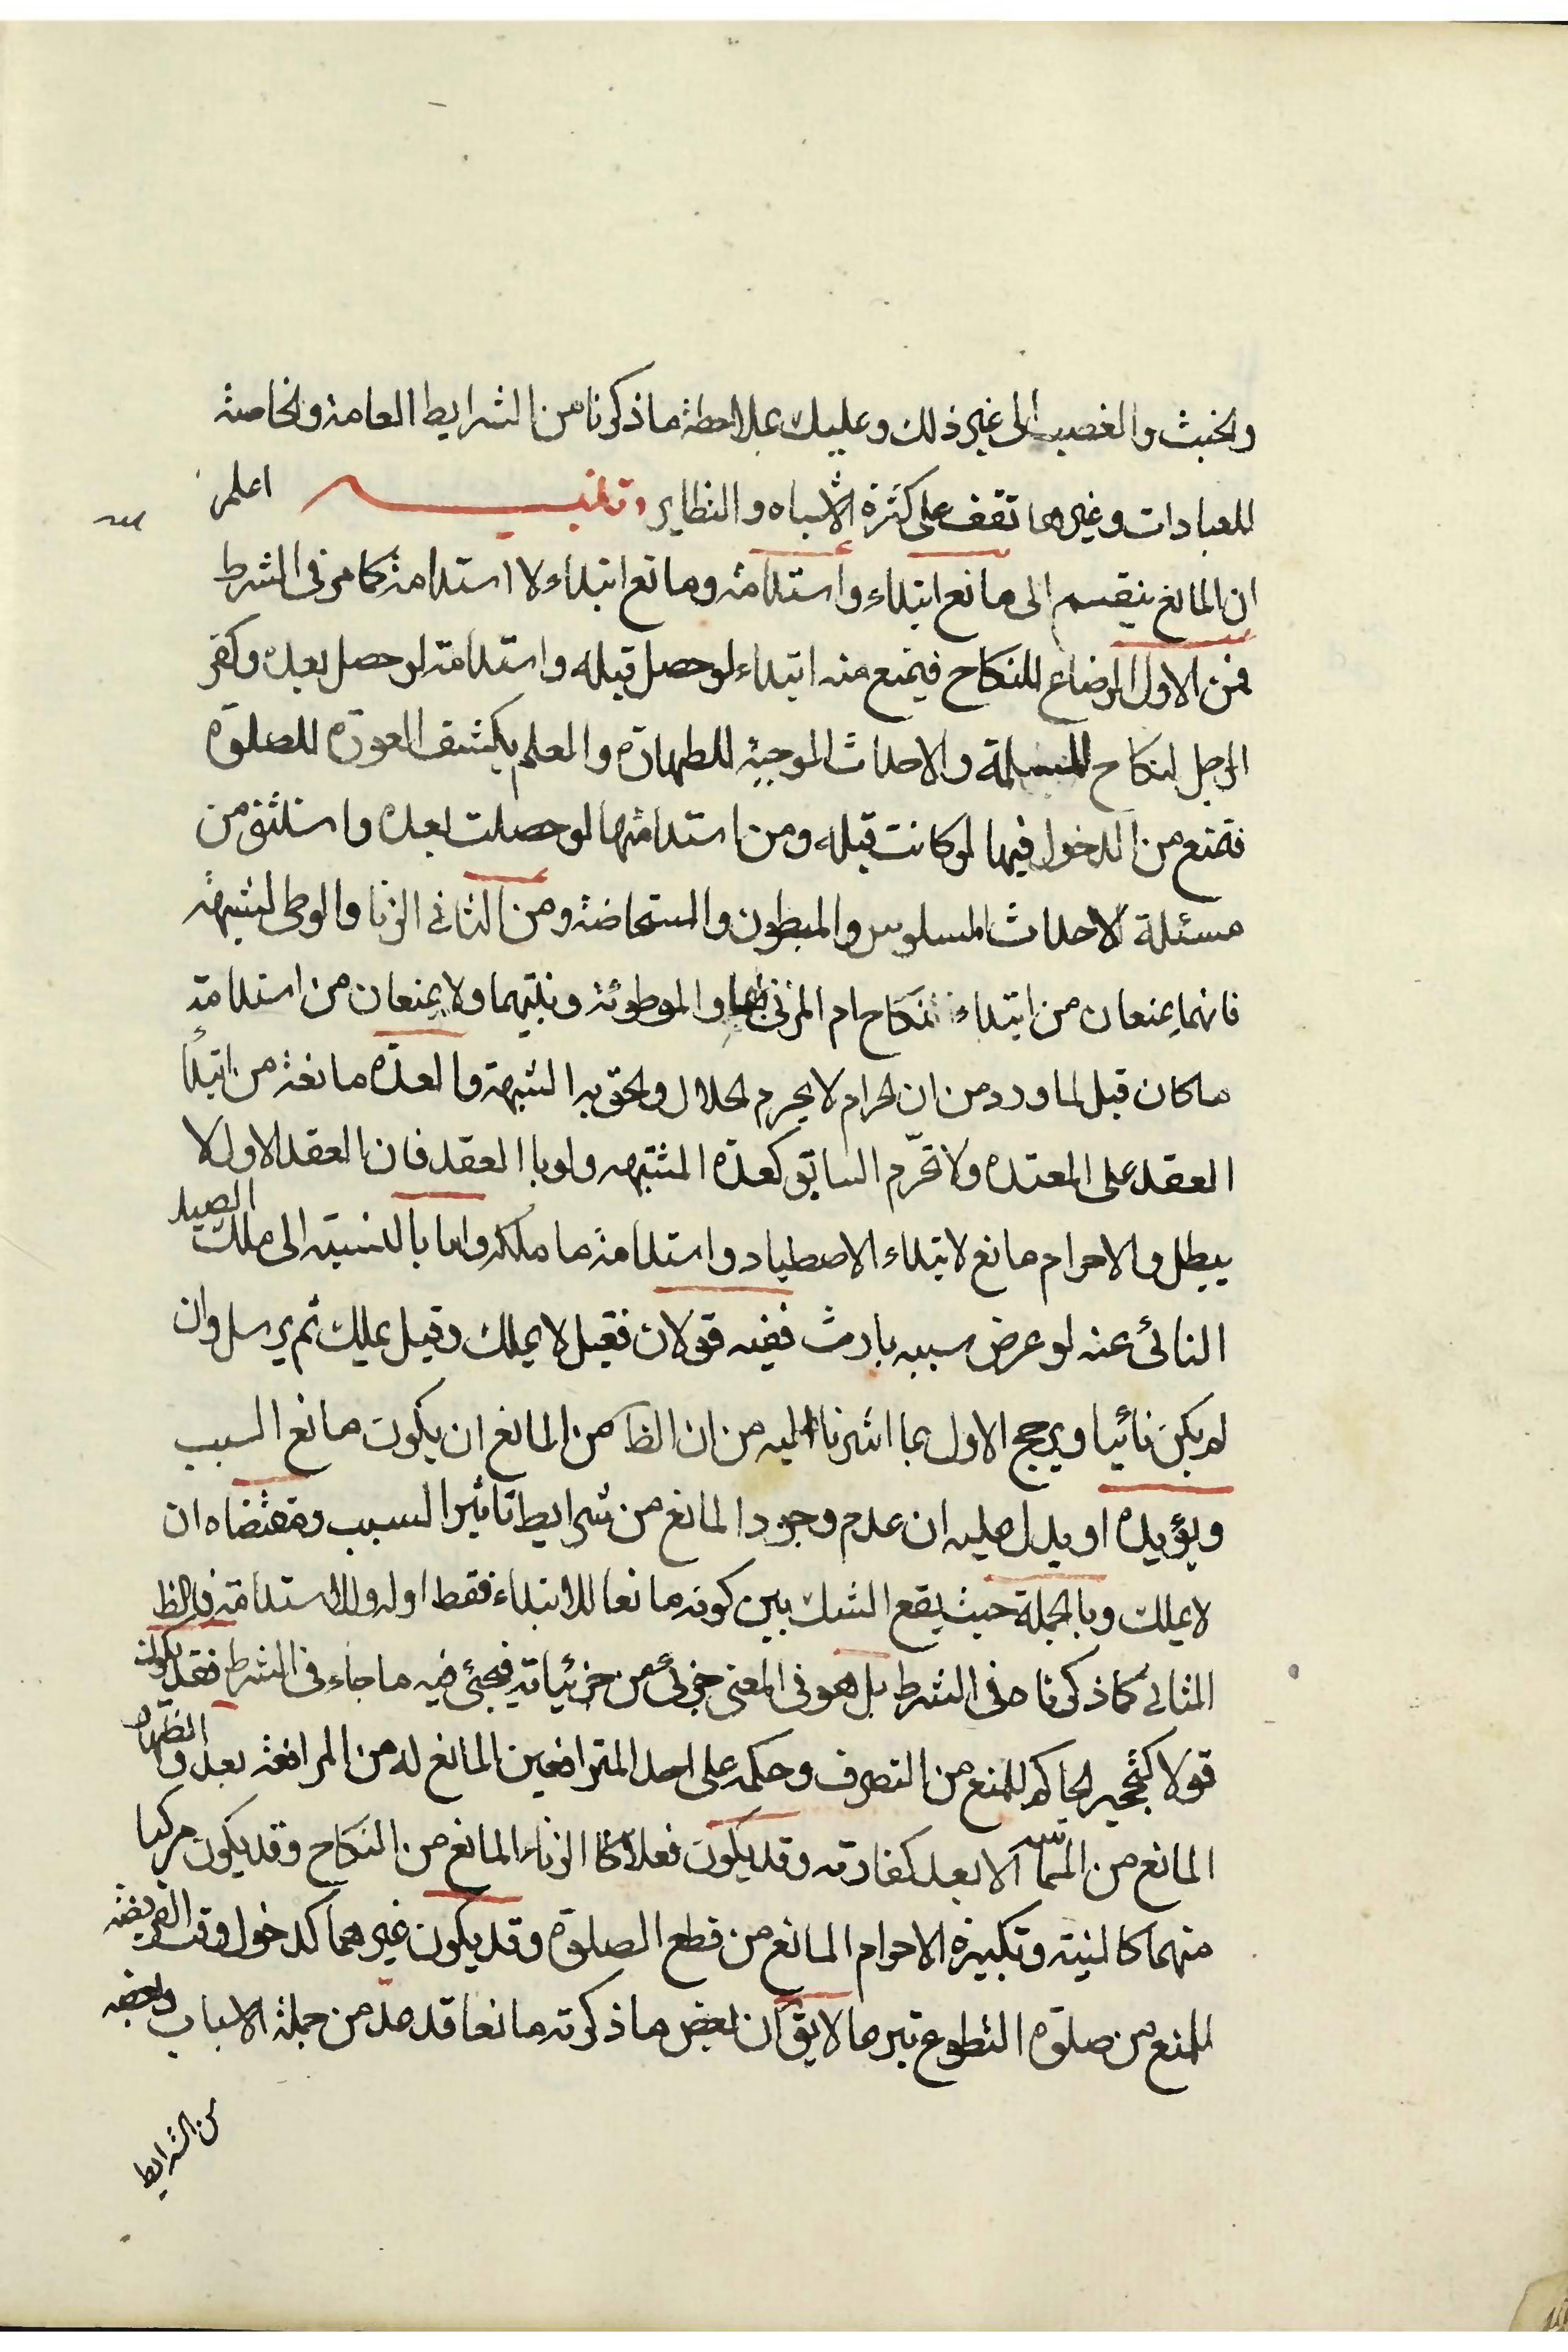 والخبث والغصب الى غير ذلك وعليك بملاحظة ما ذكرنا من الشرايط العامة والخاصة
للعبادات وغيرها تقف على كثرة الاشباه والنظاير وتقسيم اعلم
ان المانع ينقسم الى مانع ابتداء واستدامة ومانع ابتداء لا استدامة كما مر فى الشرط
فمن الاول الرضاع للنكاح فيمنع منه ابتداء لو حصل قبله واستدامة لو حصل بعده وكفر
الرجل لنكاح المسلمة والاحداث الموجبة للطهارة والعلم بكشف العورة للصلوة
فتمنع من الدخول فيها لو كانت قبله ومن استدامتها لو حصلت بعده واستثنى من
مسئلة الاحداث المسلوس والمبطون والمستحاضة ومن الثانى الزنا والوطى لشبهة
فانهما يمنعان من ابتداء نكاح ام المزنى بها والموطوئة وبنتيهما ولا يمنعان من استدامة
ما كان قبل لما ورد من ان الحرام لا يحرم الحلال والحق به الشبهة والعدة مانعة من ابتداء
العقد على المعتدة ولا تحرّم السابق كعدة المشتبهه ولو با العقد فان العقد الاول لا
يبطل والاحرام مانع لابتداء الاصطياد واستدامة ما ملكه واما بالنسبة الى ملك الصيد
النائى عنه لو عرض سببه بارث ففيه قولان فقيل لا يملك وقيل يملك ثم يرسل وان
لم يكن نائيا ويرجح الاول بما اشرنا اليه من ان الظا من المانع ان يكون مانع السبب
ويؤيده او يدل عليه ان عدم وجود المانع من شرايط تاثير السبب ومقتضاه ان
لا يملك وبالجملة حيث يقع الشك بين كونه مانعا للابتداء فقط او له وللاستدامة فالظ
الثانى كما ذكرناه فى الشرط بل هو فى المعنى جزئى من جزئياته فيجئ فيه ما جاء فى الشرط فقد يكون
قولا كتحجير الحاكم للمنع من التصرف وحكمه على احد المترافعين المانع له من المرافعة بعد والظهار
المانع من المسّ الا بعد كفارته وقد يكون فعلا كا الزناء المانع من النكاح وقد يكون مركبا
منهما كالنية وتكبيرة الاحرام المانع من قطع الصلوة وقد يكون غيرهما كدخول وقت الفريضة
للمنع من صلوة التطوع بيرها لا يق ان بعض ما ذكرته مانعا قد عدّ من جملة الاسباب وبعضه
من الشرايط